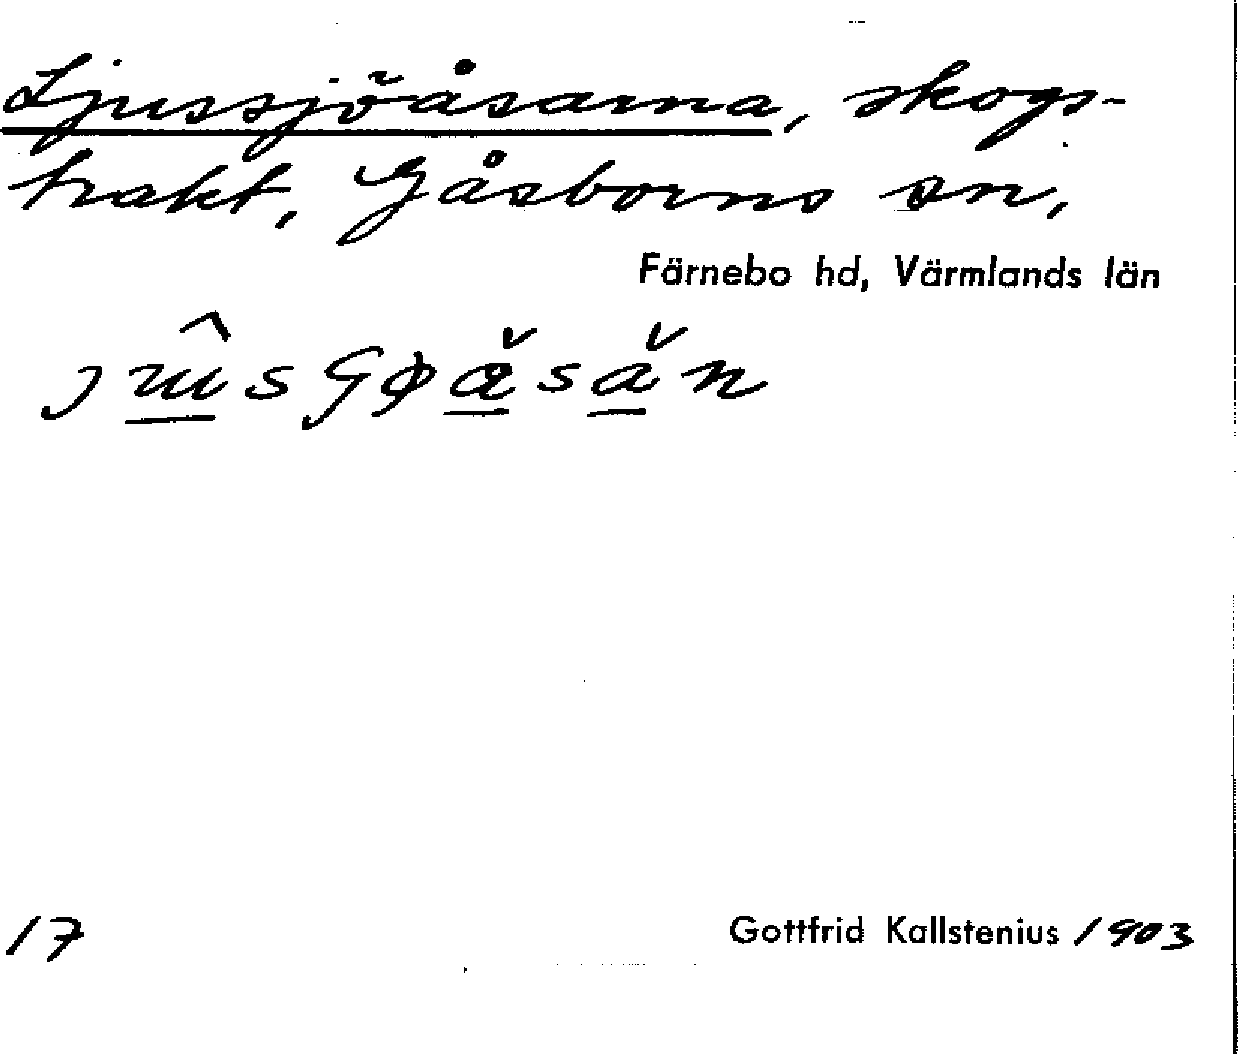 Ljussjöåsarna, skogs-
trakt, Gåsborns sn,
Färnebo hd, Värmlands län
17 Gottfrid Kallstenius 1903